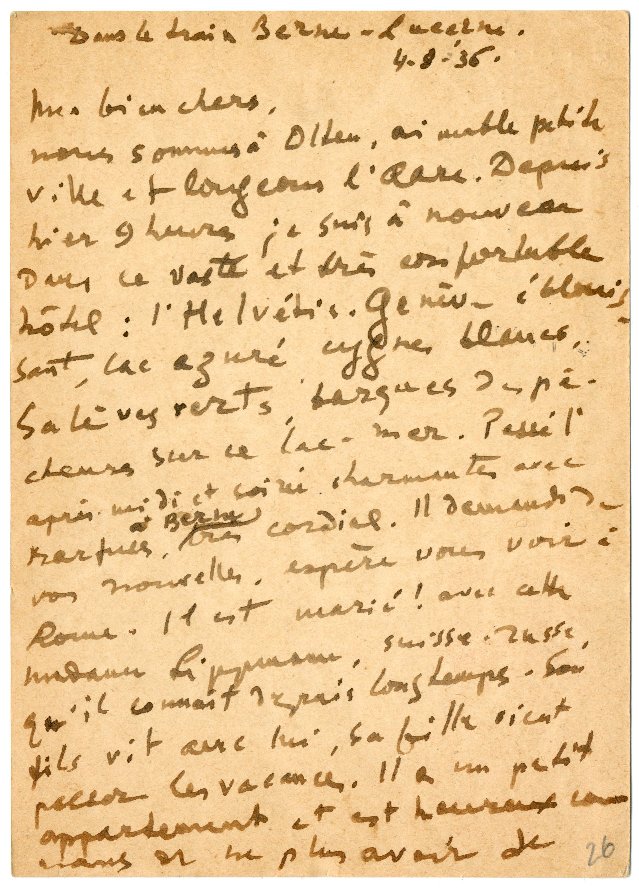 Dans le train Berne - Lucerne.
4-8-36.
Mes bien chers,
nous sommes à Olten, aimable petite
ville et longeons l'Aare. Depuis
hier 9 heures je suis à nouveau
Dans ce vaste et très confortable
hôtel : l'Helvétis. Genève éblouis-
sant, lac azuré cygnes blancs,
Salèves verts, barques de pê-
cheurs sur ce lac-mer. Passé l'
après-midi et soirée charmantes avec
à Berne
très cordial. Il demande de
vos nouvelles, espère vous voir à
Rome. Il est marié! avec cette
madame Lippmann, suisse-russe,
qu'il connait depuis longtemps. Son
fils vit avec lui, sa fille vient
passer les vacances. Il a un petit
appartement et est heureux comme
nous de ne plus avoir de
26